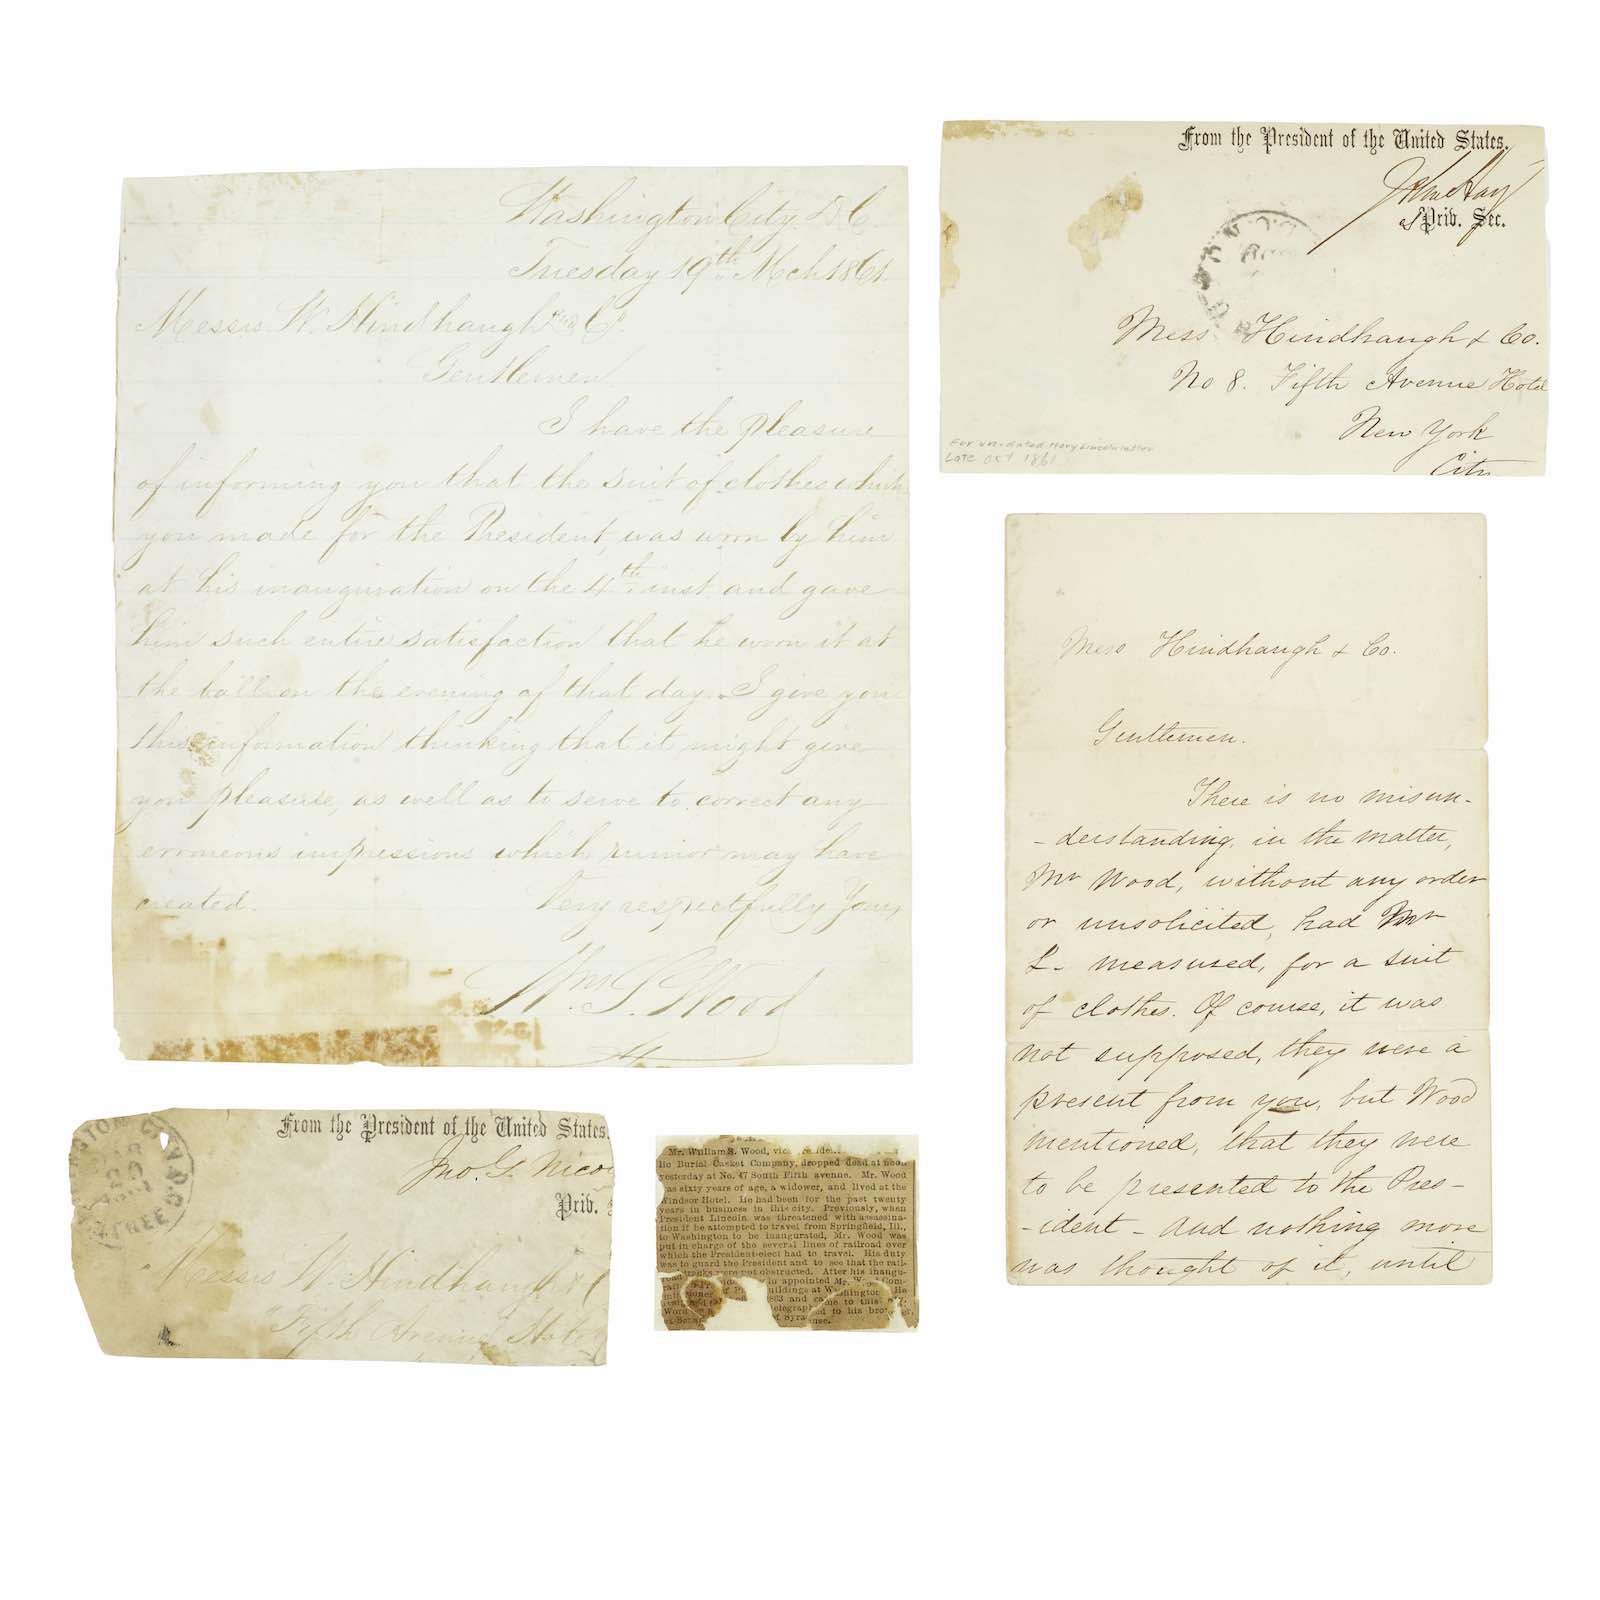 Washington City. D.C.
Tuesday 19th Mch 1861.
Messrs. W. Hindhaugh & Co.
Gentlemen
I have the pleasure
of informing you that the suit of clothes which
you made for the President, was worn by him
at his inauguration on the 4th inst and gave
him such entire satisfaction that he worn it at
the ball on the evening of that day. I give you
this information thinking that it might give
you pleasure, as well as to serve to correct any
erroneous impressions which rumor may have
created. Very respectfully Yours
Wm. S. Wood
From the President of the United States.
John Hay
Priv. Sec.
Mess Hindhaugh & Co.
No 8. Fifth Avenue Hotel
New York
City
For un-dated Mary Lincoln letter
Late Oct 1861
Mess Hindhaugh & Co.
Gentlemen.
There is no misun-
-derstanding, in the matter,
Mr Wood, without any order
or unsolicited, had Mr
L- measured, for a suit
of clothes. Of course, it was
not supposed, they were a
present from you, but Wood
mentioned, that they were
to be presented to the Pres-
-ident - and nothing more
was thought of it, until
From the President of the United States.
Jno. G. Nico
Priv.
Messrs W. Hindhaugh & C
Fifth Avenue Hotel
CITY D.C.
FREE
Mr. William S. Wood, vice
lic Burial Casket Company, dropped dead at noon
yesterday at No. 47 South Fifth avenue. Mr. Wood
was sixty years of age, a widower, and lived at the
Windsor Hotel. He had been for the past twenty
years in business in this city. Previously, when
President Lincoln was threatened with assassina-
tion if he attempted to travel from Springfield, Ill.,
to Washington to be inaugurated, Mr. Wood was
put in charge of the several lines of railroad over
which the President-elect had to travel. His duty
was to guard the President and to see that the rail-
road tracks were not obstructed. After his inaugu-
appointed Mr. Wood Com-
uildings at Washington He
1863 and came to this
elegraphed to his bro
of Syra use.